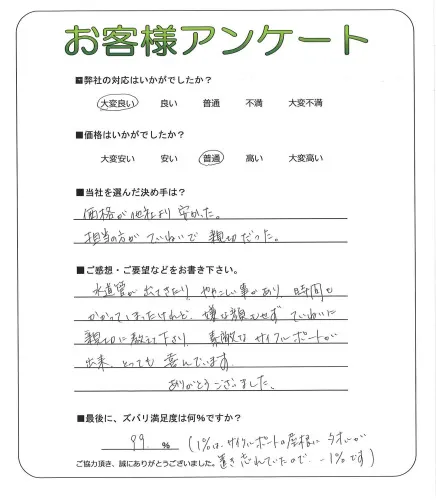 お客様アンケート
■弊社の対応はいかがでしたか？
大変良い 良い 普通 不満 大変不満
■価格はいかがでしたか？
大変安い 安い 普通 高い 大変高い
■当社を選んだ決め手は？
価格が他社より安かった。
担当の方がていねいで親切だった。
■ご感想・ご要望などをお書き下さい。
水道管が出てきたり、ややこしい事があり、時間も
かかってしまったけれど、嫌な顔もせずていねいに
親切に教えて下さり、素敵なサイクルポートが
出来、とっても喜んでいます
ありがとうございました。
■最後に、ズバリ満足度は何%ですか？
99 % (1%は、サイクルポートの屋根にタオルが
置き忘れていたので、-1%です)
ご協力頂き、誠にありがとうございました。